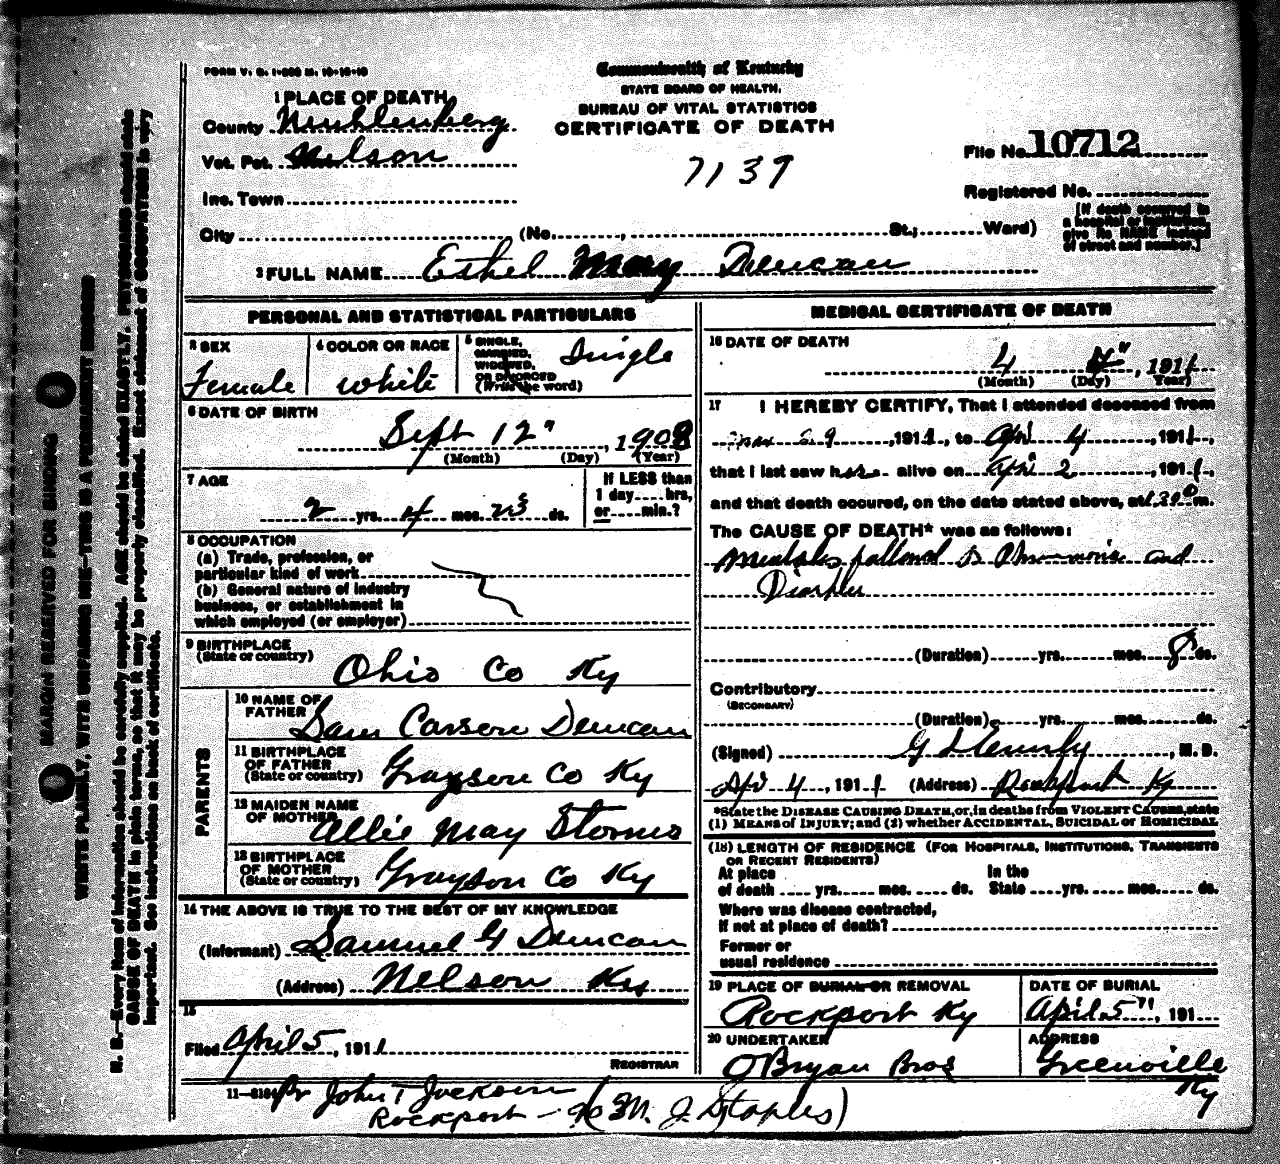 FORM V. S. 1-
Commonwealth of Kentucky
STATE BOARD OF HEALTH.
BUREAU OF VITAL STATISTICS
CERTIFICATE OF DEATH
7139
1 PLACE OF DEATH
County Muhlenberg
Vot. Pct. Nelson
Inc. Town
City (No. , St.; Ward)
File No. 10712
Registered No.
[If death occurred in
a hospital or institution,
give its NAME instead
of street and number.]
2 FULL NAME Ethel May Duncan
PERSONAL AND STATISTICAL PARTICULARS
3 SEX
Female
4 COLOR OR RACE
white
5 SINGLE,
MARRIED,
WIDOWED,
OR DIVORCED
(Write the word)
Single
6 DATE OF BIRTH
Sept 12", 1908
(Month) (Day) (Year)
7 AGE
2 yrs. mos. 23 ds.
If LESS than
1 day.... hrs,
or.... min.?
8 OCCUPATION
(a) Trade, profession, or
particular kind of work
(b) General nature of industry
business, or establishment in
which employed (or employer)
9 BIRTHPLACE
(State or country)
Ohio Co Ky
PARENTS
10 NAME OF
FATHER
Sam Carson Duncan
11 BIRTHPLACE
OF FATHER
(State or country)
Grayson Co Ky
12 MAIDEN NAME
OF MOTHER
Allie May Stoms
13 BIRTHPLACE
OF MOTHER
(State or country)
Grayson Co Ky
14 THE ABOVE IS TRUE TO THE BEST OF MY KNOWLEDGE
(Informant) Samuel G Duncan
(Address) Nelson Ky
15
Filed April 5, 1911
REGISTRAR
MEDICAL CERTIFICATE OF DEATH
16 DATE OF DEATH
4 4", 1911
(Month) (Day) Year)
17 I HEREBY CERTIFY, That I attended deceased from
, 1911, to Apri 4, 1911,
that I last saw her alive on Apri 2 1911,
and that death occured, on the date stated above, at m.
The CAUSE OF DEATH* was as follows:
Measles followed by Pneumonia and
(Duration) yrs. mos. 8 ds.
Contributory
(SECONDARY)
(Duration) yrs. mos. ds.
(Signed) , M. D.
4, 1911 (Address) Rockport Ky
*State the DISEASE CAUSING DEATH, or, in deaths from VIOLENT CAUSES, state
(1) MEANS of INJURY; and (2) whether ACCIDENTAL, SUICIDAL or HOMICIDAL
(18) LENGTH OF RESIDENCE (FOR HOSPITALS, INSTITUTIONS, TRANSIENTS
OR RECENT RESIDENTS)
At place In the
of death .... yrs. mos. ds. State yrs. mos. ds.
Where was disease contracted,
If not at place of death?
Former or
usual residence
19 PLACE OF BURIAL OR REMOVAL
Rockport Ky
DATE OF BURIAL
April 5" 191
20 UNDERTAKER
O'Bryan Bros
ADDRESS
Greenville
Ky
Pr John T Jackson
Rockport - % (M. J. Staples)
MARGIN RESERVED FOR BINDING
WRITE PLAINLY, WITH UNFADING INK—THIS IS A PERMANENT RECORD
N. B.—Every item of information should be carefully supplied. AGE should be stated EXACTLY. PHYSICIANS should state
CAUSE OF DEATH in plain terms, so that it may be properly classified. Exact statement of OCCUPATION is very
important. See instructions on back of certificate.